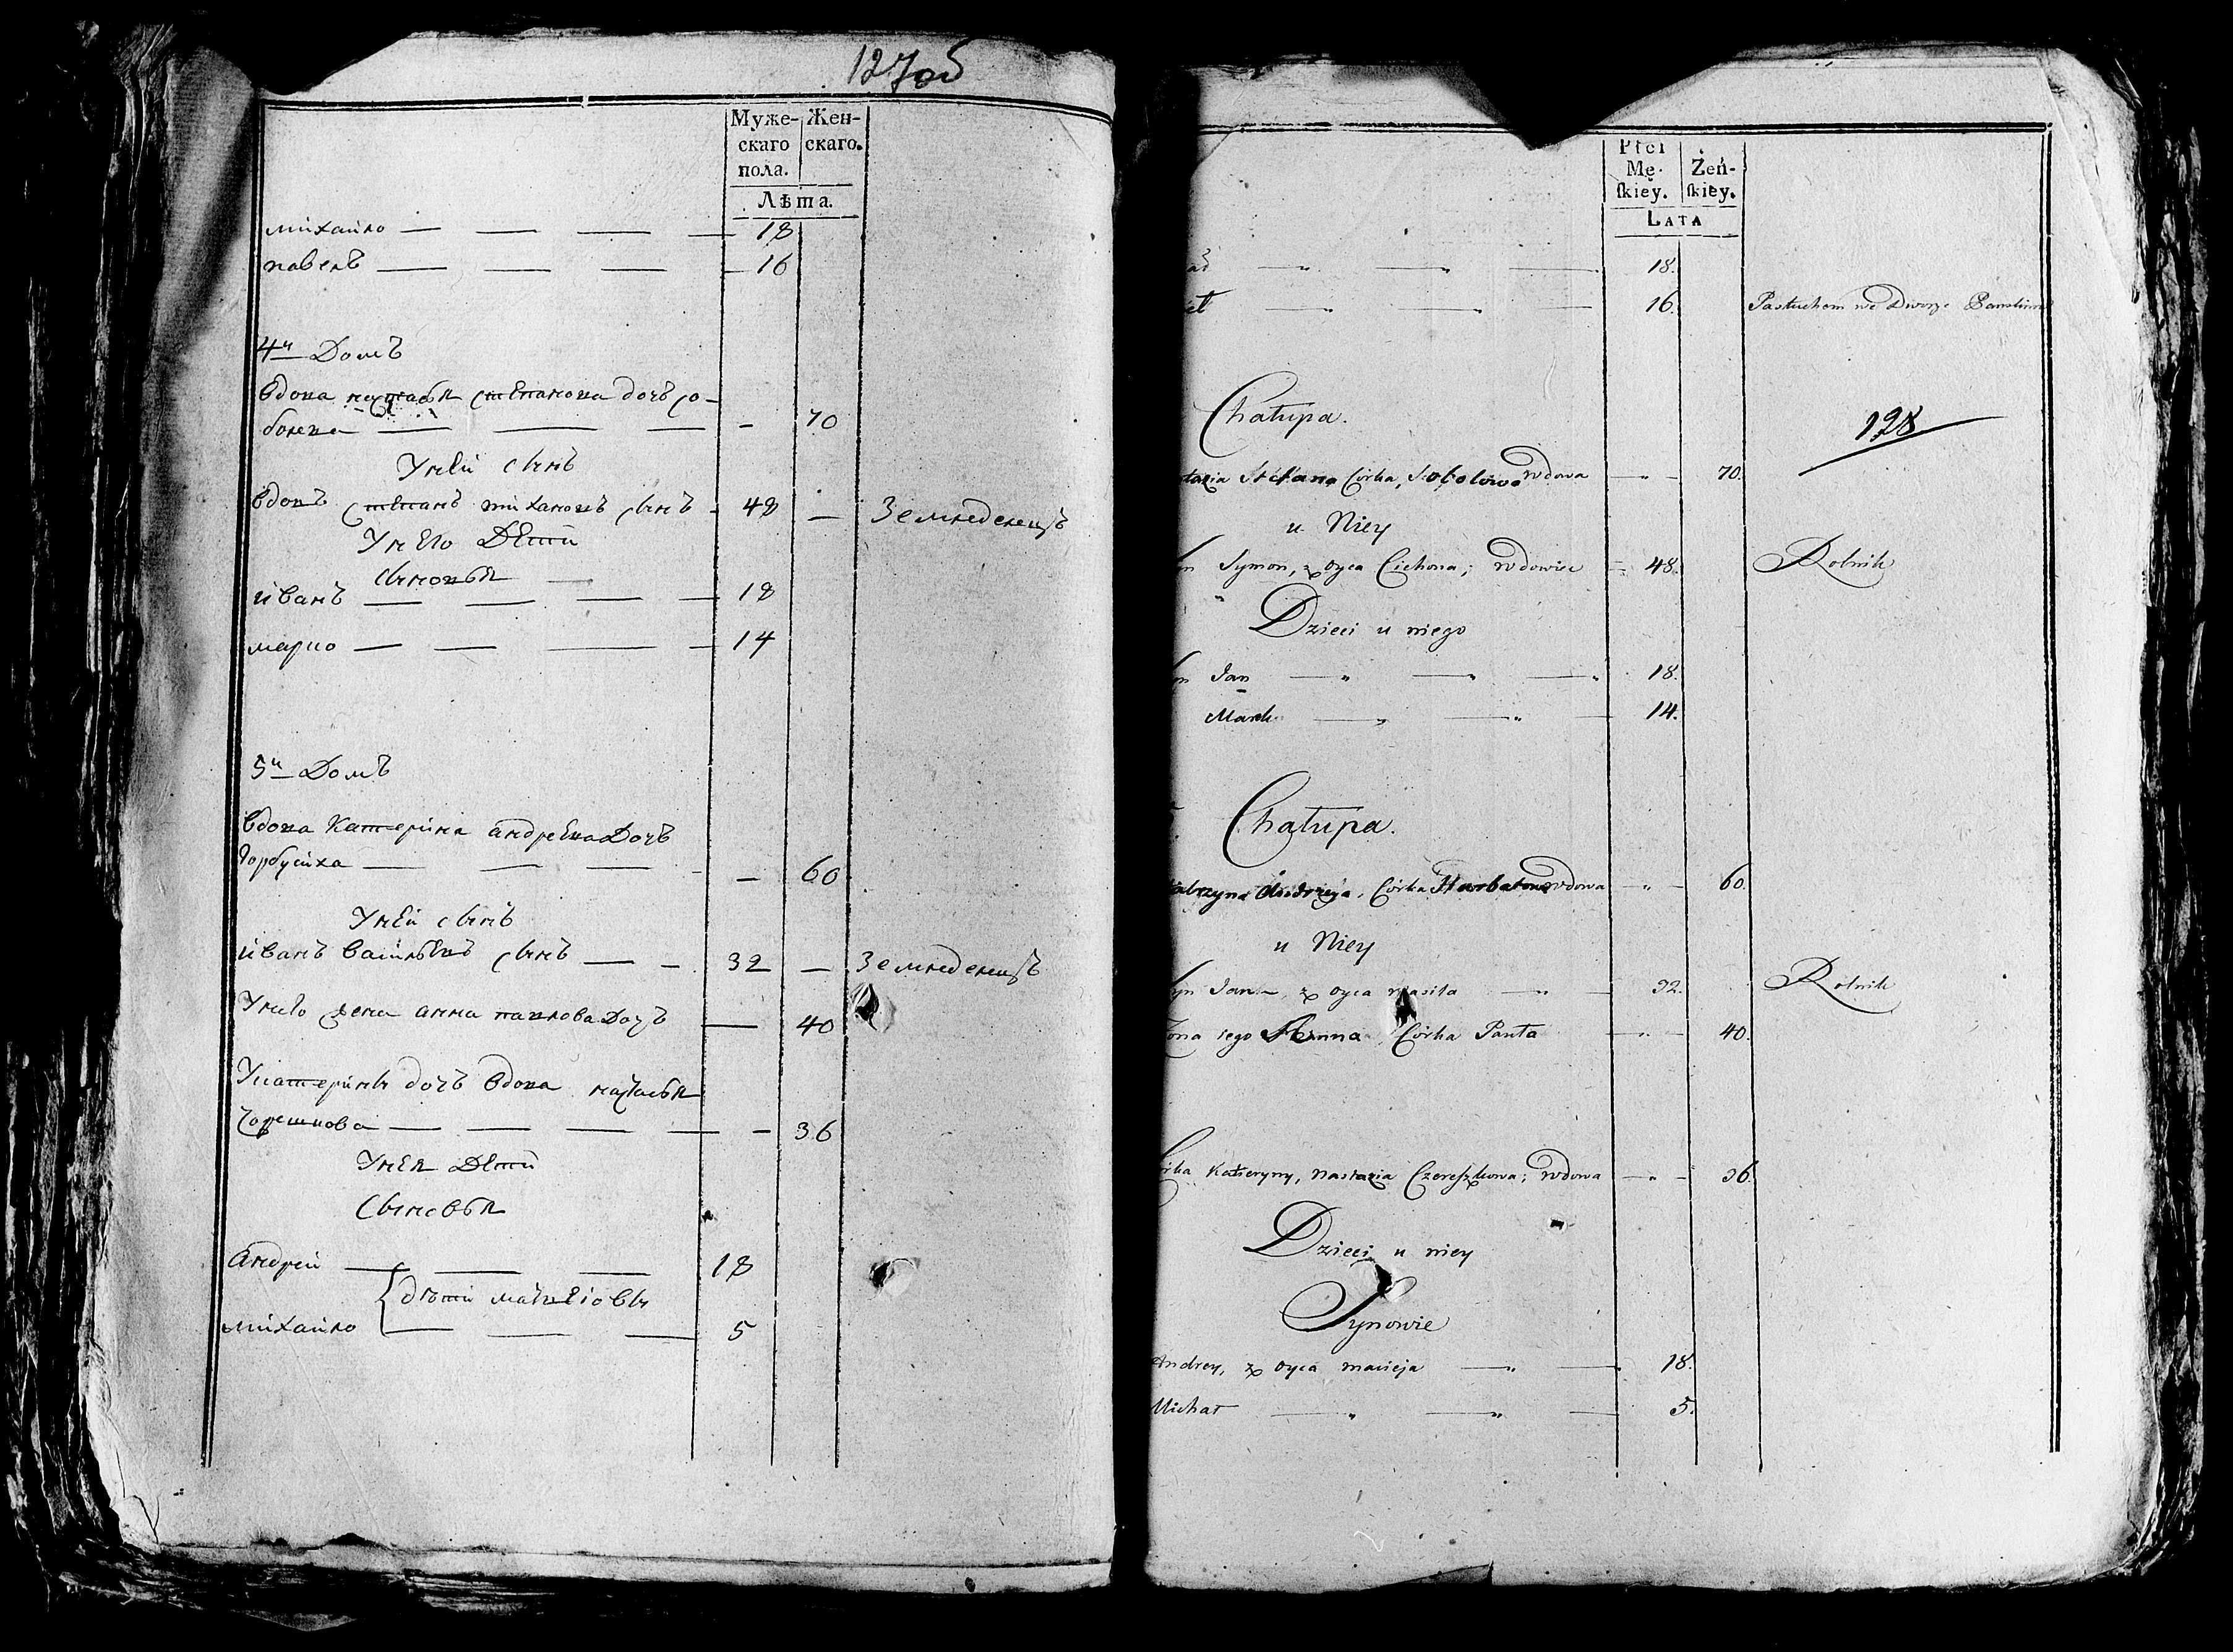 127об
Муже- Жен-
скаго скаго.
пола.
Лѣта.
михайло 18
павелъ 16
4й Домъ
вдова настасья степанова дочь со-
болева 70
Унеи сынъ
вдовъ тихановъ сынъ 48 Земледелецъ
Унего Дети
сыновья
иванъ 18
марко 14
5й Домъ
вдова Катерина андреева Дочь
горбусиха 60
Унеи сынъ
иванъ васильевъ сынъ 32 Земледелецъ
Унего жена анна павлова Дочь 40
Укатерины дочь вдова настасья
36
Унея Дети
Сыновья
андреи 18
дети
михайло 5
Płci
Mę- Żeń-
skiey. skiey.
LATA
18.
16. Pastuchem we Dworze
Chałupa.
128
Stefana Córka, wdowa 70.
u Niey
Symon, z oyca Cichona; wdowiec 48. Rolnik
Dzieci u niego
Jan 18.
Marek 14.
Chałupa.
Andrzeja, Córka wdowa 60.
u Niey
z oyca Wasila 32. Rolnik
iego Anna Córka Pawła 40.
Kateryny, nastazia Czereszkowa; wdowa 36.
Dzieci u niey
Synowie
Andrey, z oyca macieja 18.
Michał 5.